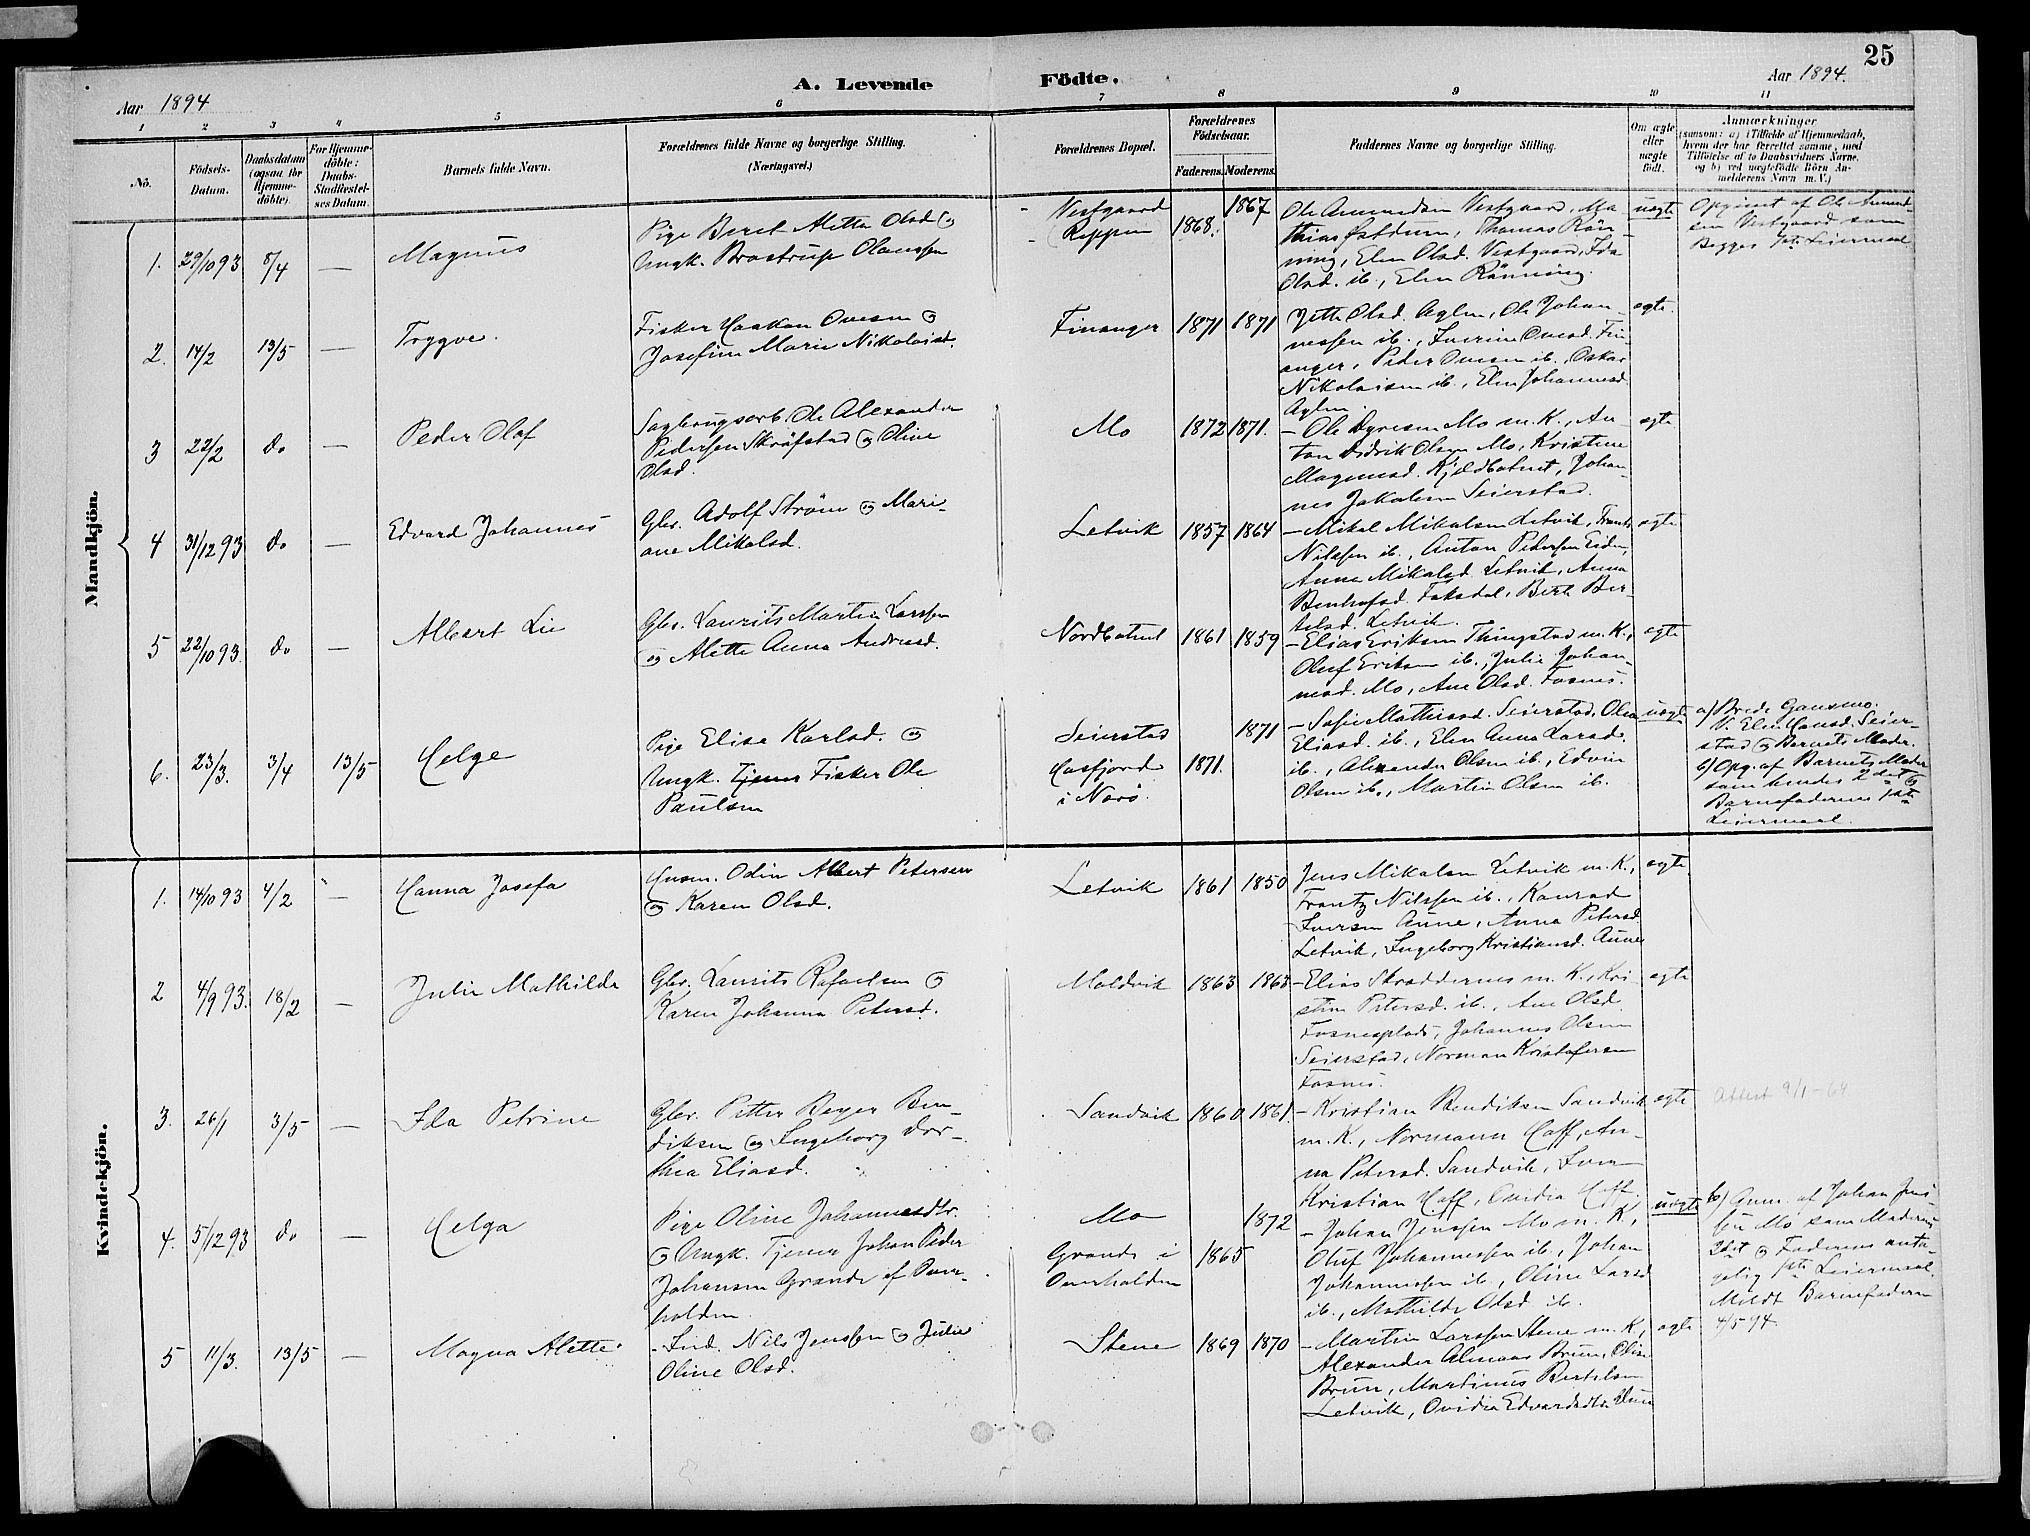 25
A. Levende Födte.
Aar 1894
Aar 1894.
1 2 3 4 5 6 7 8 9 10 11
No.
Födsels-
Datum.
Daabsdatum
(ogsaa for
Hjemme-
döbte).
For Hjemme-
döbte:
Daabs-
Stadfestel-
ses Datum.
Barnets fulde Navn.
Forældrenes fulde Navne og borgerlige Stilling.
(Næringsvei.)
Forældrenes Bopæl.
Forældrenes
Födselsaar.
Faderens.
Moderens.
Faddernes Navne og borgerlige Stilling.
Om ægte
eller
uægte
födt.
Anmærkninger
(saasom: a) i Tilfælde af Hjemmedaab,
hvem der har forrettet samme, med
Tilföielse af to Daabsvidners Navne,
og b) ved uægtefödte Börn An-
melderens Navn m. V.)
Mandkjön.
1. 29/10 93 8/4 — Magnus
Pige Beret Aletta Olsd. og
Ungk. Brostrup Olaussen
Vestgaard
Reppen
1868. 1867
Ole Amundsen Vestgaard, Ma-
thias Østduun, Thomas Rön-
ning, Elen Olsd. Vestgaard, Ida
Olsd. ib., Elen Rönning.
uægte
Opgivet af Ole Amund-
sen Vestgaard som
Begges 1ste Leiermaal
2. 14/2 13/5 — Trygve.
Fisker Haakon Ovesen og
Josefine Marie Nikolaisd.
Finanger 1871 1871
Jette Olsd. Aglen, Ole Johan-
nessen ib., Iverine Ovesd. Fin-
anger, Peder Ovesen ib., Oskar
Nikolaisen ib., Elen Johannesd.
Aglen.
ægte.
3 22/2 do — Peder Olaf
Sagbrugsarb. Ole Alexander
Pedersen Skröfstad og Olive
Olsd.
Mo 1872 1871.
– Ole Dyresen Mo m. K., An-
ton Didrik Olsen Mo, Kristine
Magnusd. Kjeldbotnet, Johan-
nes Jakobsen Seierstad.
ægte
4 31/12 93 do — Edvard Johannes
Gbr. Adolf Ström og Mari-
ane Mikalsd.
Letvik 1857 1864
– Mikal Mikalsen Letvik, Frantz
Nilssen ib., Anton Pedersen Eiden,
Anna Mikalsd. Letvik, Anna
Faksdal, Berit Ber-
telsd. Letvik.
ægte
5 22/10 93. do — Albert Lie
Gbr. Laurits Martin Larssen
og Alette Anna Andreasd.
Nordbotnet 1861 1859
– Elias Eriksen Thingstad m. K.,
Oluf Eriksen ib., Julie Johan-
nesd. Mo, Ane Olsd. Fosnes.
ægte
6. 23/3. 3/4 13/5 Helge
Pige Elise Karlsd. og
Ungk. Fisker Ole
Paulsen
Seierstad
Hosfjord
i Nærö.
1871. 1871
– Sofie Mathisd. Seierstad, Olea
Eliasd. ib., Elen Anna Larsd.
ib., Alexander Olsen ib., Edvin
Olsen ib., Martin Olsen ib.
uægte
a) Brede Gansmo.
V. Elen Hansd. Seier-
stad og Barnets Moder.
b) Opg. af Barnets Moder
som hendes 2det og
Barnefaderens 1ste
Leiermaal.
Kvindekjön.
1. 14/10 93 4/2 — Hanna Josefa
Husm. Odin Albert Petersen
og Karen Olsd.
Letvik 1861 1850
Jens Mikalsen Letvik m. K.,
Frantz Nilssen ib., Konrad
Iversen Aune, Anna Petersd.
Letvik, Ingeborg Kristiansd. Aune
ægte
2 4/9 93. 18/2 — Julie Mathilde
Gbr. Laurits Rafaelsen og
Karen Johanna Petersd.
Moldvik 1863 1863
– Elias Skraddernes m. K., Kri-
stine Petersd. ib., Ane Olsd.
Fosnesplads, Johannes Olsen
Seierstad, Norman Kristofersen
Fosnes.
ægte
3. 26/1 3/5 — Ida Petrine
Gbr. Petter Beyer Ben-
diksen og Ingeborg Dor-
thea Eliasd.
Sandvik 1860 1861.
– Kristian Bendiksen Sandvik
m. K., Normann Hoff, An-
na Petersd. Sandvik, Iver
Kristian Hoff, Ovidia Hoff.
ægte
Attest 9/1-64
4. 5/12 93 do — Helga
Pige Oline Johannesdtr.
og Ungk. Tjener Johan Peder
Johansen Grande af Over-
halden
Mo
Grande i
Overhalden
1865 1872
– Johan Jenssen Mo m. K.,
Oluf Johannessen ib., Johan
Johannessen ib., Oline Larsd.
ib., Mathilde Olsd. ib.
uægte
b) Anm. af Johan Jens-
sen Mo som Moderens
2det og Faderens anta-
gelig 1ste Leiermaal.
Meldt Barnefaderen
4/5 94
5 11/3. 13/5 — Magna Alette
– Ind. Nils Jenssen og Julie
Oline Olsd.
Stene 1869 1870
– Martin Larssen Stene m. K,
Alexander Almaas Bruun, Oline
Bruun, Martinus Bertelsen
Letvik, Ovidia Edvardsdtr.
ægte